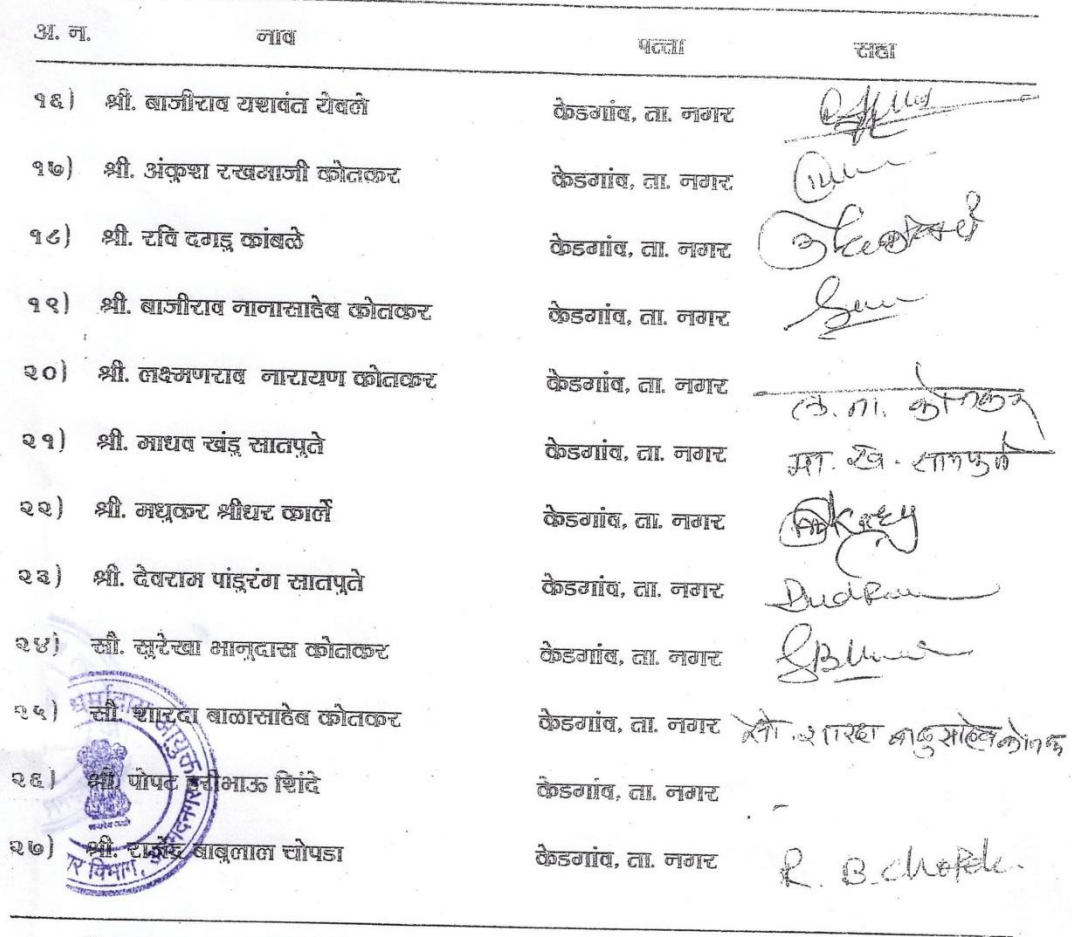 अ. न. नाव पत्ता सही
१६) श्री. बाजीराव यशवंत येवले केडगांव, ता. नगर
१७) श्री. अंकुश रखमाजी कोतकर केडगांव, ता. नगर
१८) श्री. रवि दगडू कांबळे केडगांव, ता. नगर
१९) श्री. बाजीराव नानासाहेब कोतकर केडगांव, ता. नगर
२०) श्री. लक्ष्मणराव नारायण कोतकर केडगांव, ता. नगर ल. ना. कोतकर
२१) श्री. माधव खंडू सातपुते केडगांव, ता. नगर मा. खं. सातपुते
२२) श्री. मधुकर श्रीधर कार्ले केडगांव, ता. नगर
२३) श्री. देवराम पांडुरंग सातपुते केडगांव, ता. नगर
२४) सौ. सुरेखा भानुदास कोतकर केडगांव, ता. नगर
२५) सौ. शारदा बाळासाहेब कोतकर केडगांव, ता. नगर सौ. शारदा बाळासाहेब कोतकर
२६) श्री. पोपट हरीभाऊ शिंदे केडगांव, ता. नगर -
२७) श्री. राजेंद्र बाबुलाल चोपडा केडगांव, ता. नगर R. B. Chopde.
धर्मादाय आयुक्त
विभाग,